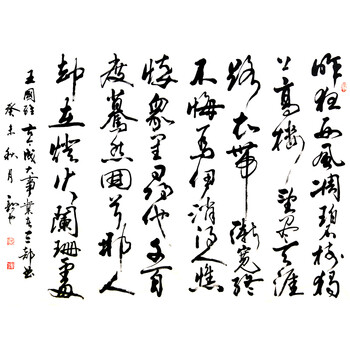 昨夜西風凋碧樹獨
上高樓望盡天涯
路衣帶漸寬終
不悔為伊消得人憔
悴眾里尋他千百
度驀然回首那人
却在燈火闌珊處
王國維古今成大事業之三部曲
癸未秋月